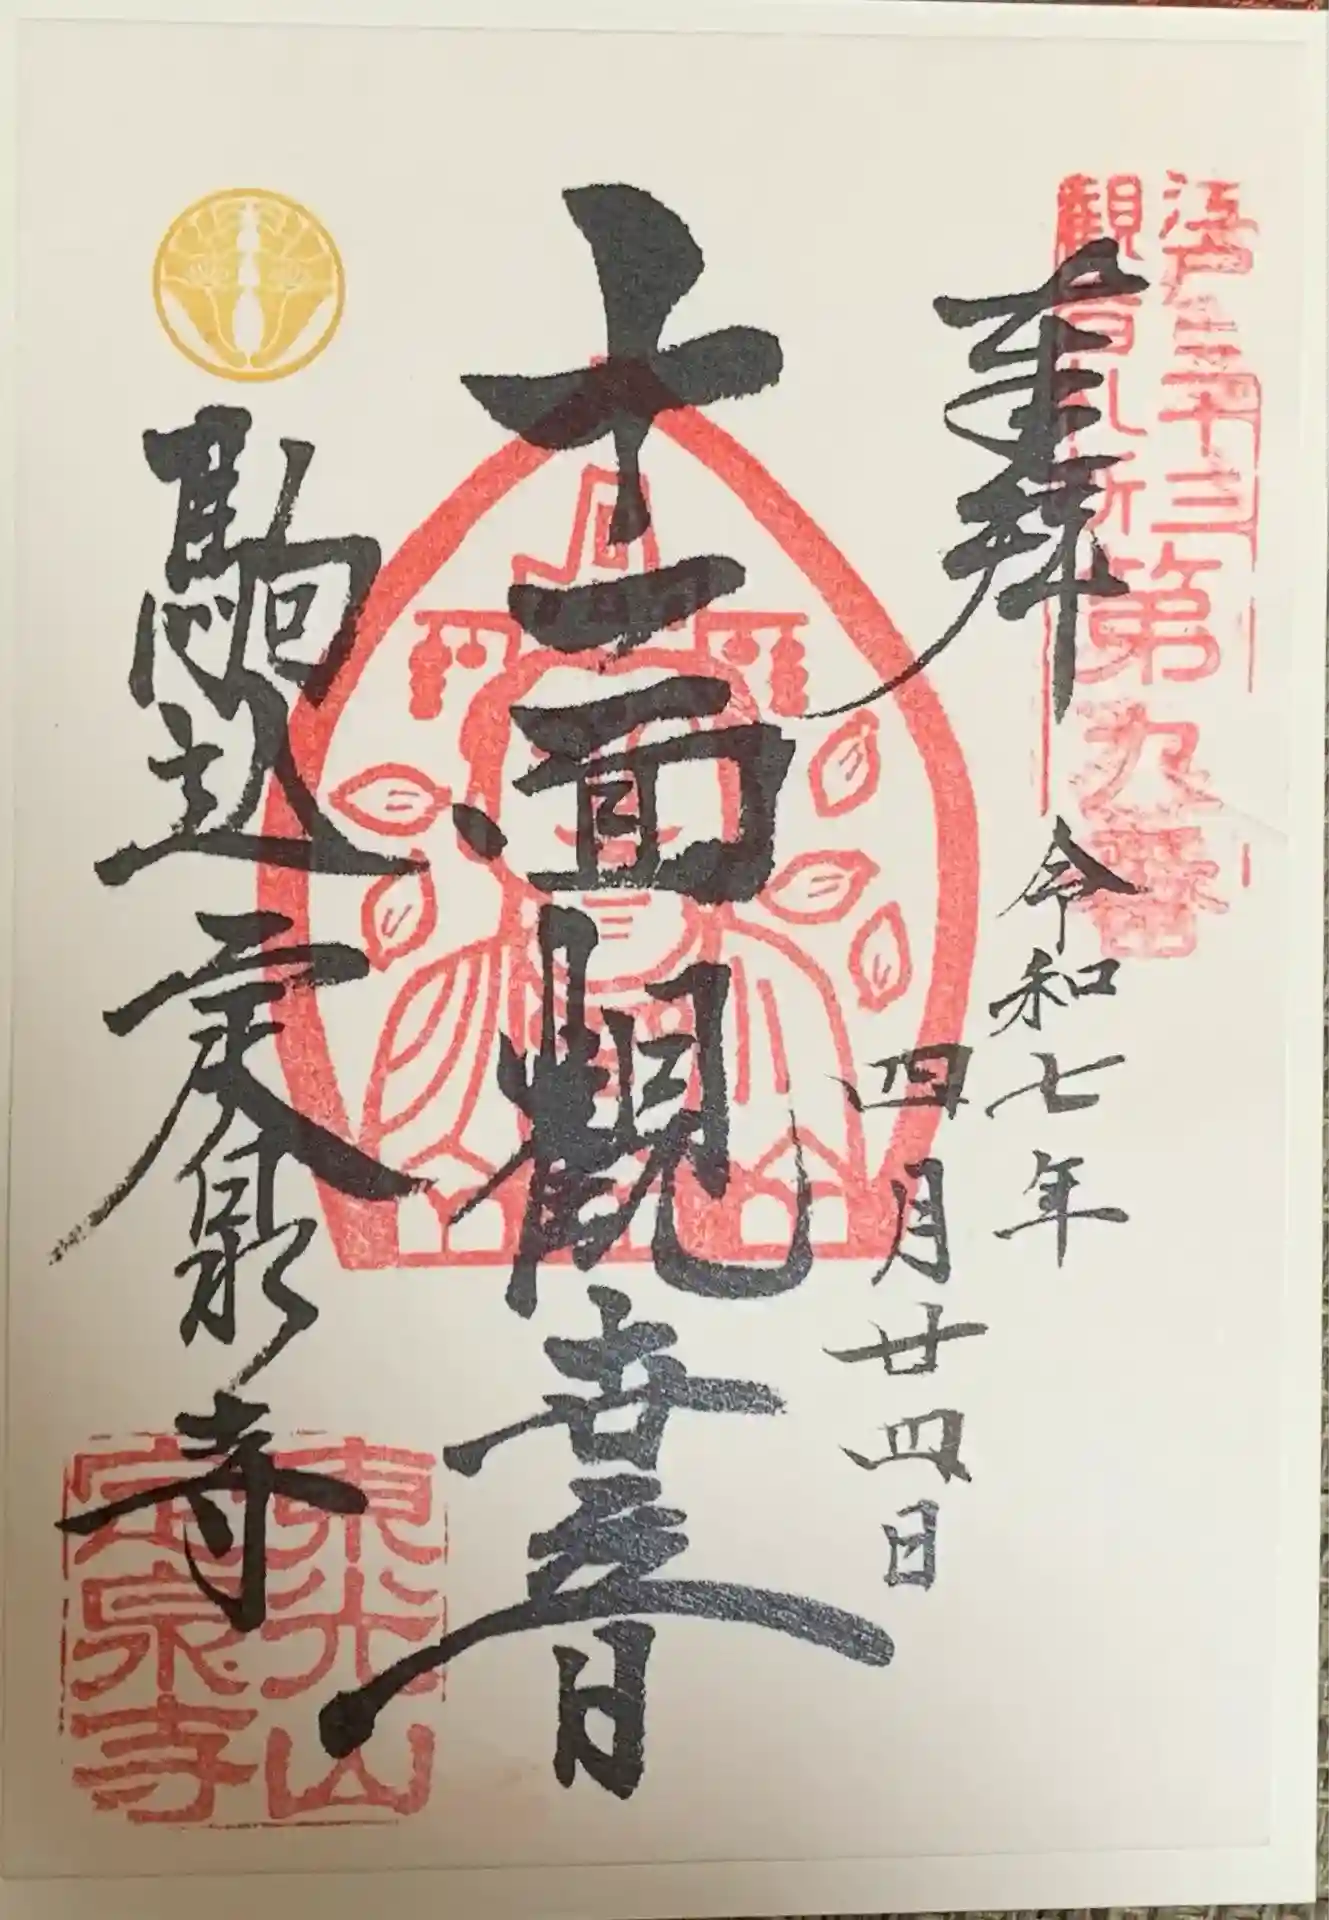 江戸三十三
觀音札所
第九番
奉拝
令和七年
四月廿四日
十一面観世音
駒込定泉寺
東光山
定泉寺